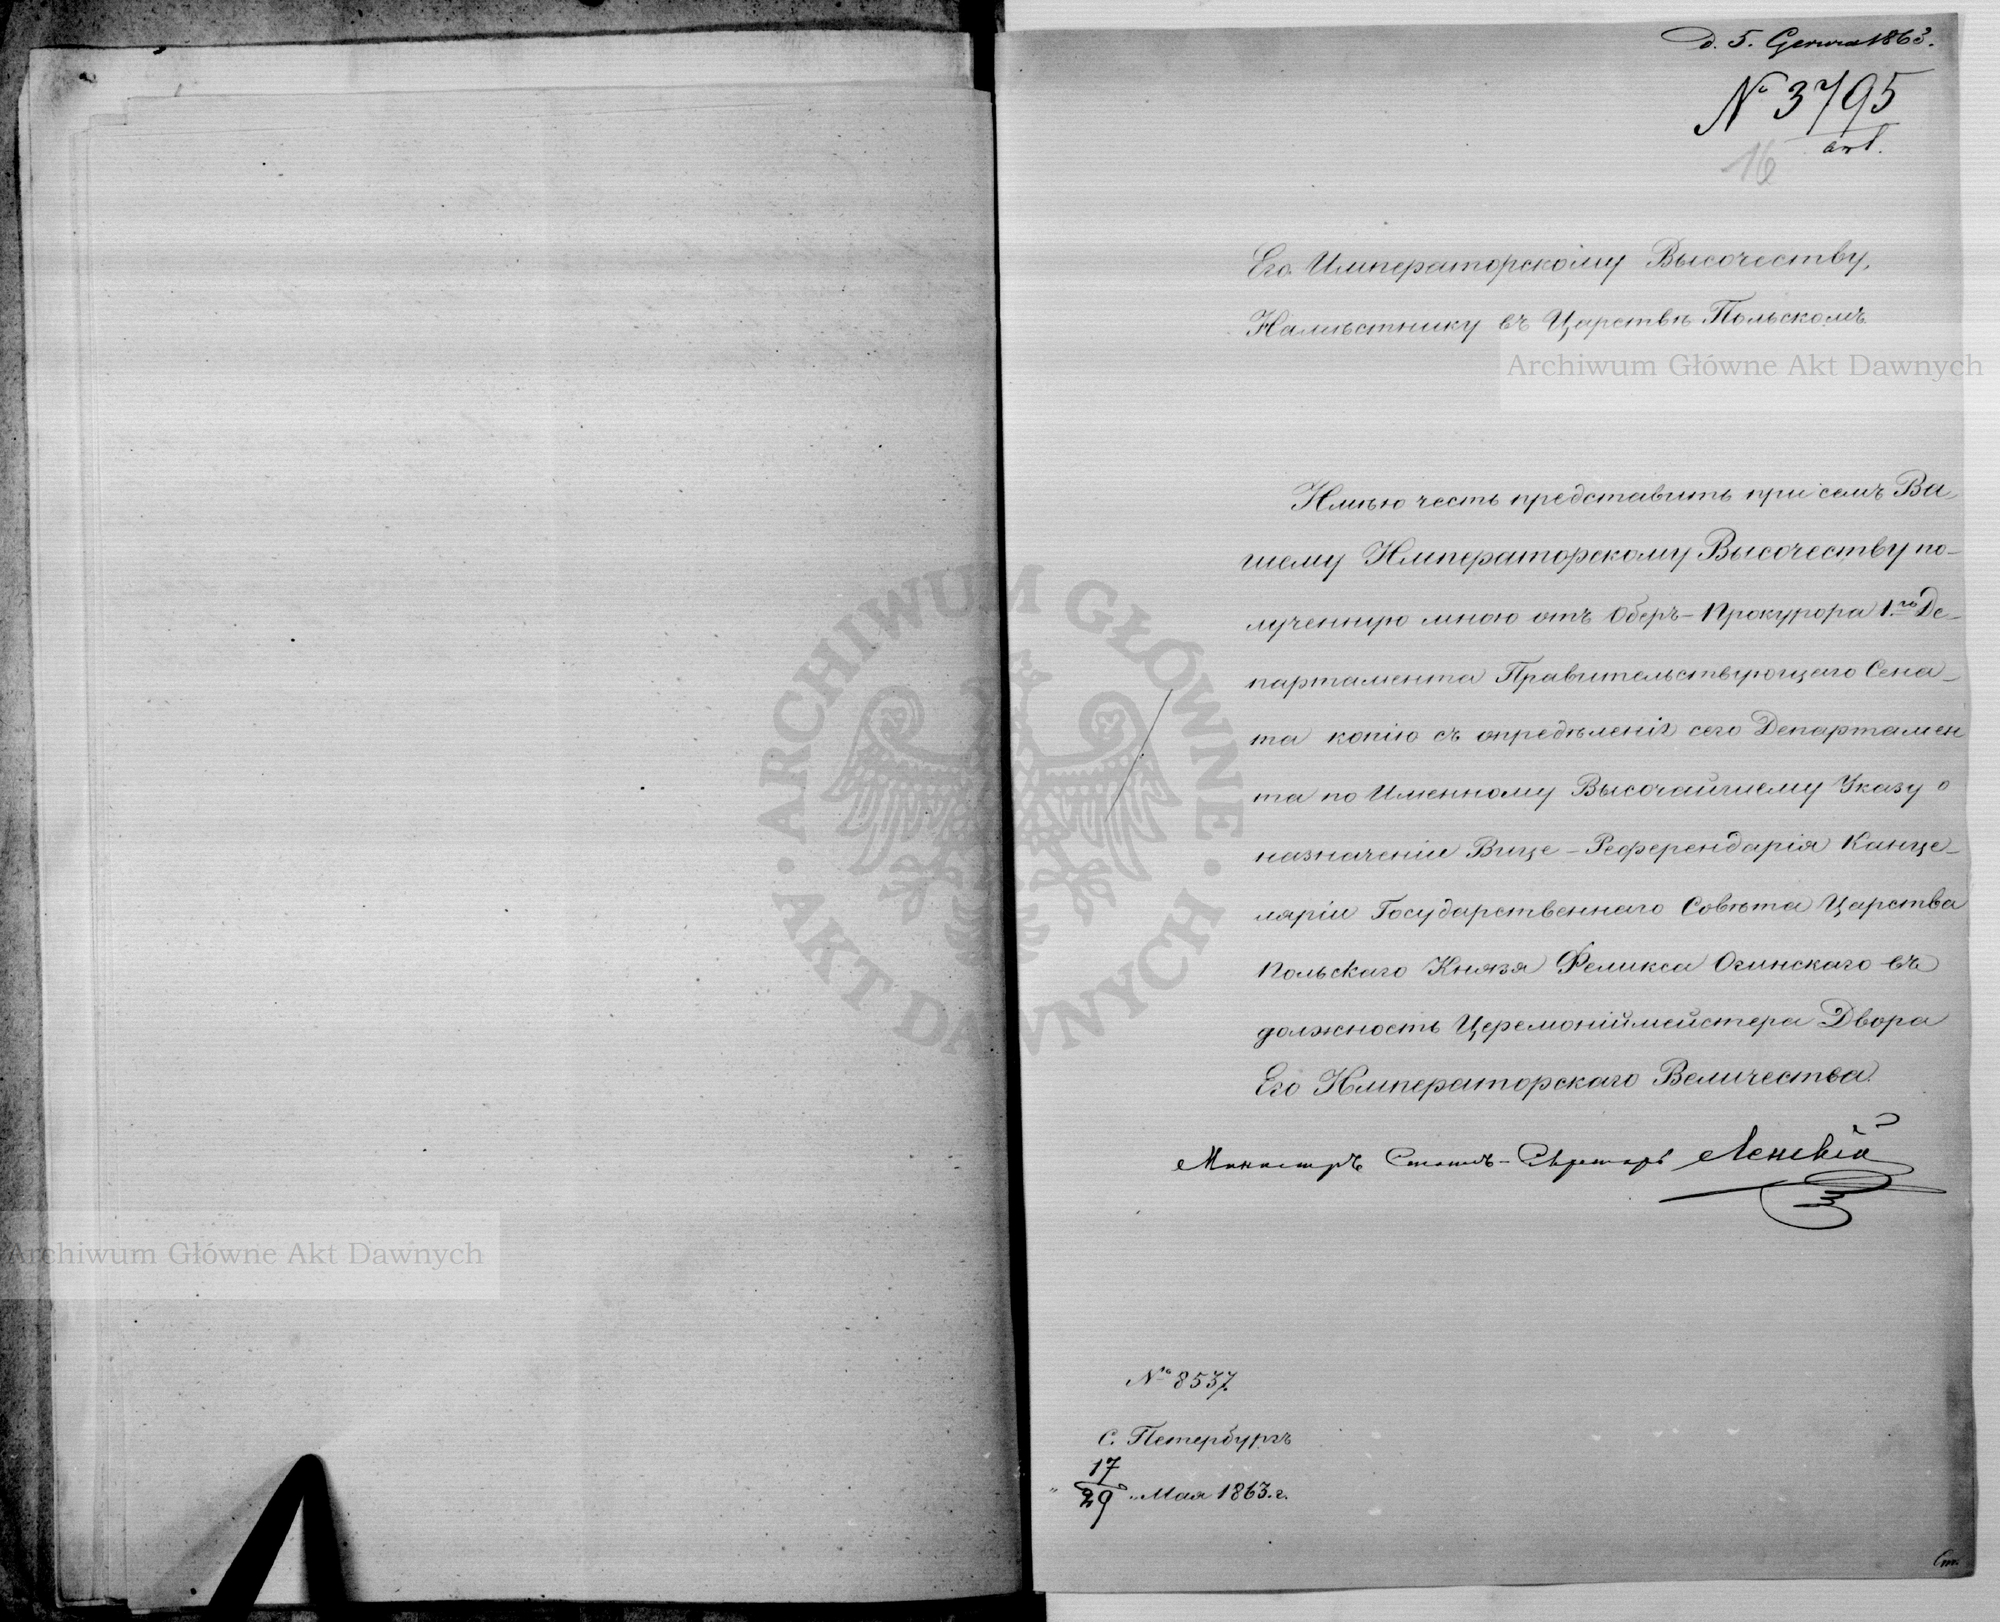 d. 5. Czerwca 1863.
№ 3795
16
Его Императорскому Высочеству,
Намѣстнику въ Царствѣ Польскомъ
Archiwum Główne Akt Dawnych
Имѣю честь представить при семъ Ва-
шему Императорскому Высочеству по-
лученную мною отъ Оберъ-Прокурора 1.го Де-
партамента Правительствующаго Сена-
та копію съ опредѣленія сего Департамен
та по Именному Высочайшему Указу о
назначеніи Вице-Референдарія Канце-
ляріи Государственнаго Совѣта Царства
Польскаго Князя Феликса Огинскаго въ
должность Церемоніймейстера Двора
Его Императорскаго Величества.
Министръ Статсъ-Секретарь Ленскій
ARCHIWUM GŁÓWNE · AKT DAWNYCH ·
Archiwum Główne Akt Dawnych
№ 8537.
С. Петербургъ
17
29 Мая 1863. г.